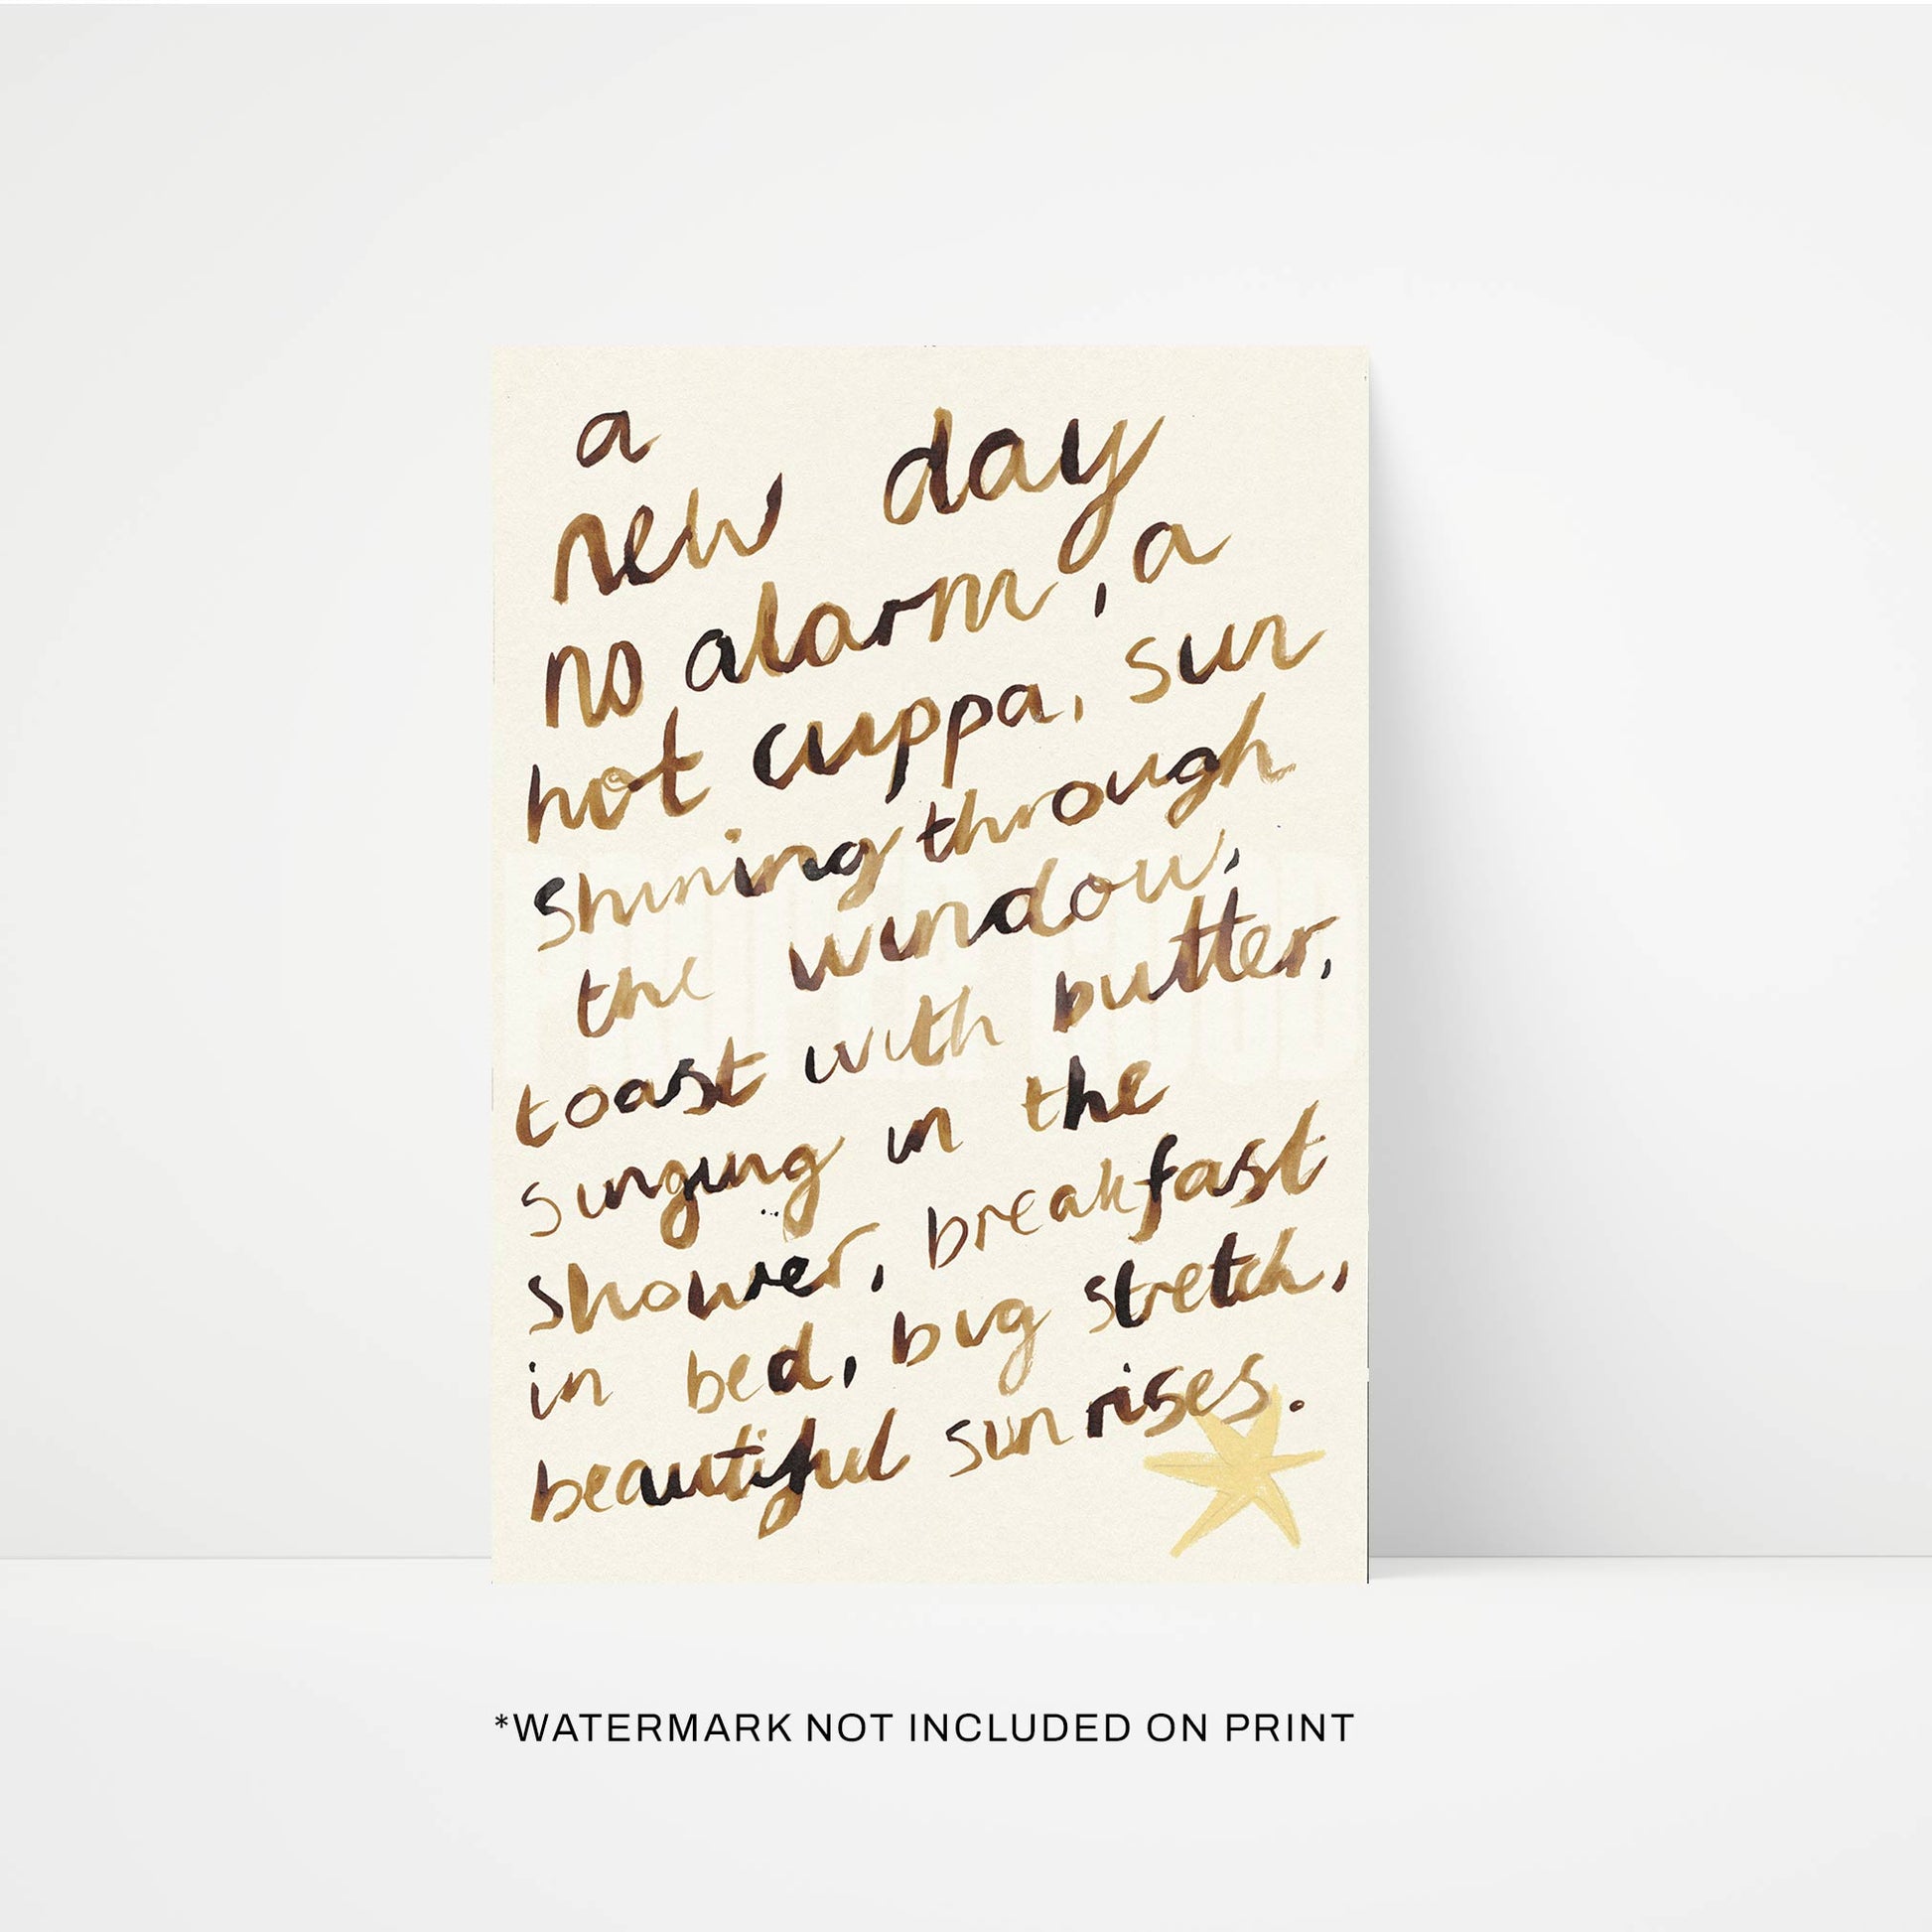 a
new day
no alarm, a
hot cuppa, sun
shining through
the window,
toast with butter,
singing in the
shower, breakfast
in bed, big stretch,
beautiful sun rises.
*WATERMARK NOT INCLUDED ON PRINT